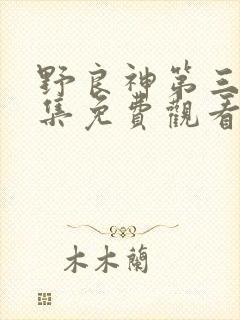 野良神第三
集免費觀看
木木蘭